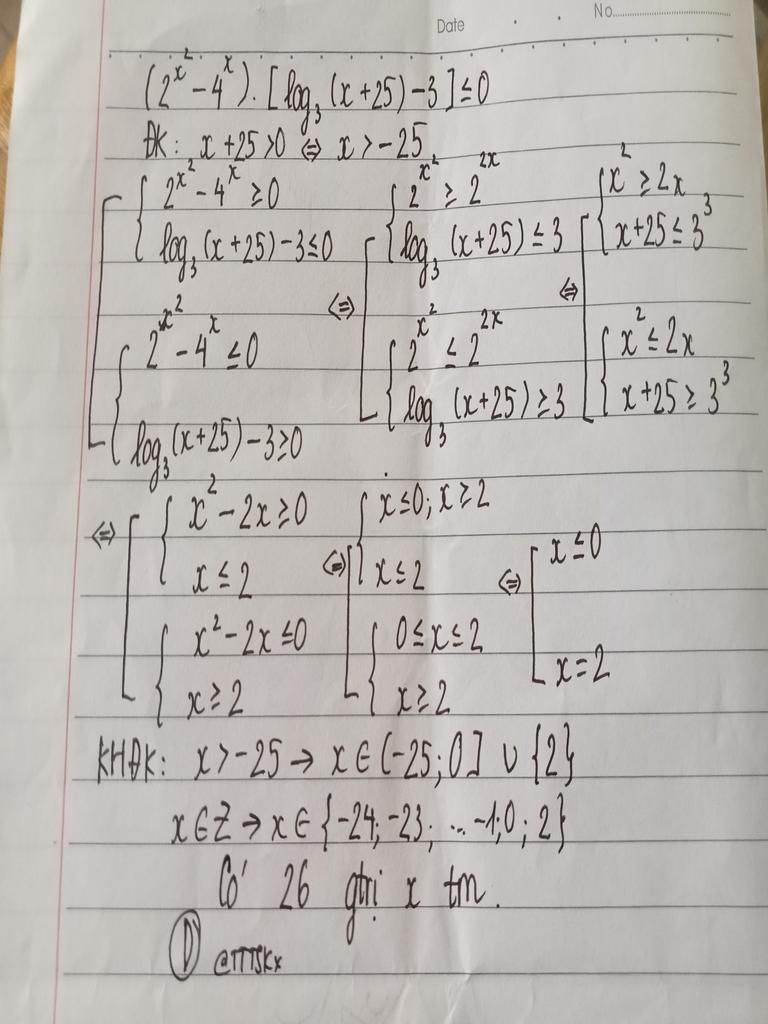 Date No.
(2^{x^2} - 4^x). [log_3 (x+25) - 3] ≤ 0
ĐK: x + 25 > 0 ⇔ x > -25
[ { 2^{x^2} - 4^x ≥ 0 ; log_3 (x+25) - 3 ≤ 0
{ 2^{x^2} - 4^x ≤ 0 ; log_3 (x+25) - 3 ≥ 0
⇔ [ { 2^{x^2} ≥ 2^{2x} ; log_3 (x+25) ≤ 3
{ 2^{x^2} ≤ 2^{2x} ; log_3 (x+25) ≥ 3
⇔ [ { x^2 ≥ 2x ; x+25 ≤ 3^3
{ x^2 ≤ 2x ; x+25 ≥ 3^3
⇔ [ { x^2 - 2x ≥ 0 ; x ≤ 2
{ x^2 - 2x ≤ 0 ; x ≥ 2
⇔ [ { x ≤ 0; x ≥ 2 ; x ≤ 2
{ 0 ≤ x ≤ 2 ; x ≥ 2
⇔ [ x ≤ 0
x = 2
KHĐK: x > -25 → x ∈ (-25; 0] ∪ {2}
x ∈ Z → x ∈ {-24; -23; ... -1; 0; 2}
Có 26 gtrị x tm.
D @TTTSKx